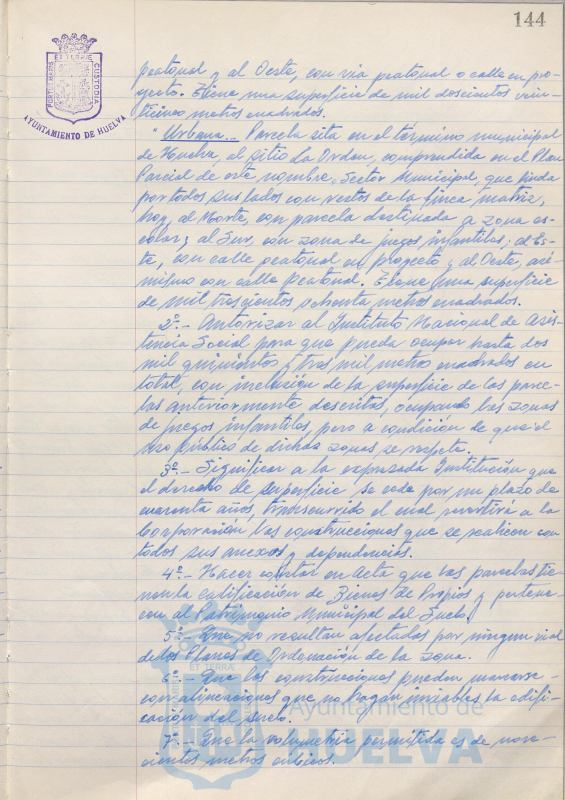 144
PORTUS MARIS ET TERRÆ CUSTODIA
AYUNTAMIENTO DE HUELVA
peatonal y al Oeste, con vía peatonal o calle en pro-
yecto. Tiene una superficie de mil doscientos vein-
ticinco metros cuadrados.
"Urbana... Parcela sita en el término municipal
de Huelva, al sitio La Orden, comprendida en el Plan
Parcial de este nombre, Sector Municipal, que linda
por todos sus lados con restos de la finca matriz,
hoy, al Norte, con parcela destinada a zona es-
colar; al Sur, con zona de juegos infantiles; al Es-
te, con calle peatonal en proyecto y al Oeste, asi-
mismo con calle peatonal. Tiene una superficie
de mil trescientos ochenta metros cuadrados.
2º.- Autorizar al Instituto Nacional de Asis-
tencia Social para que pueda ocupar hasta dos
mil quinientos y tres mil metros cuadrados en
total, con inclusión de la superficie de las parce-
las anteriormente descritas, ocupando las zonas
de juegos infantiles, pero a condición de que el
uso público de dichas zonas se respete.
3º.- Significar a la expresada Institución que
el derecho de superficie se cede por un plazo de
cuarenta años, transcurrido el cual revertirá a la
Corporación las construcciones que se realicen con
todos sus anexos y dependencias.
4º.- Hacer constar en Acta que las parcelas tie-
nen la calificación de Bienes de Propios y pertene-
cen al Patrimonio Municipal del Suelo.
5º.- Que no resultan afectadas por ningun vial
de los Planes de Ordenación de la zona.
6º.- Que las construcciones pueden
con alineaciones que no hagan inviables la edifi-
cación del suelo.
7º.- Que la volumetría permitida es de nove-
cientos metros cúbicos.
ET TERRÆ
Ayuntamiento de
HUELVA